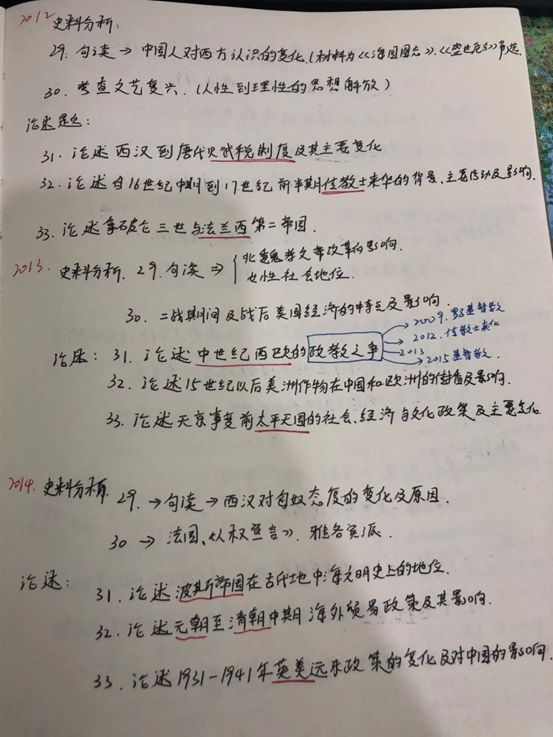 2012 史料分析：
29. 句读 → 中国人对西方认识的变化.(材料为《海国图志》.《盛世危言》节选.
30. 考查文艺复兴.（人性到理性的思想解放）
论述题：
31. 论述西汉到唐代赋税制度及其主要变化
32. 论述自16世纪中期到17世纪前半期传教士来华的背景、主要活动及影响.
33. 论述拿破仑三世与法兰西第二帝国.
2013. 史料分析. 29. 句读 ⇒ 北魏孝文帝改革的影响.
女性社会地位.
30. 二战期间及战后美国经济的特点及影响.
2009. 基督教
论述： 31. 论述中世纪西欧的政教之争
2012. 传教士来华
2013
2015 基督教.
32. 论述15世纪以后美洲作物在中国和欧洲的传播及影响.
33. 论述天京事变前太平天国的社会、经济与文化政策及主要变化.
2014. 史料分析. 29. → 句读 → 西汉对匈奴态度的变化及原因.
30 → 法国《人权宣言》. 雅各宾派.
论述： 31. 论述波斯帝国在古代地中海文明史上的地位.
32. 论述元朝至清朝中期海外贸易政策及其影响.
33. 论述1931-1941年英美远东政策的变化及对中国的影响.